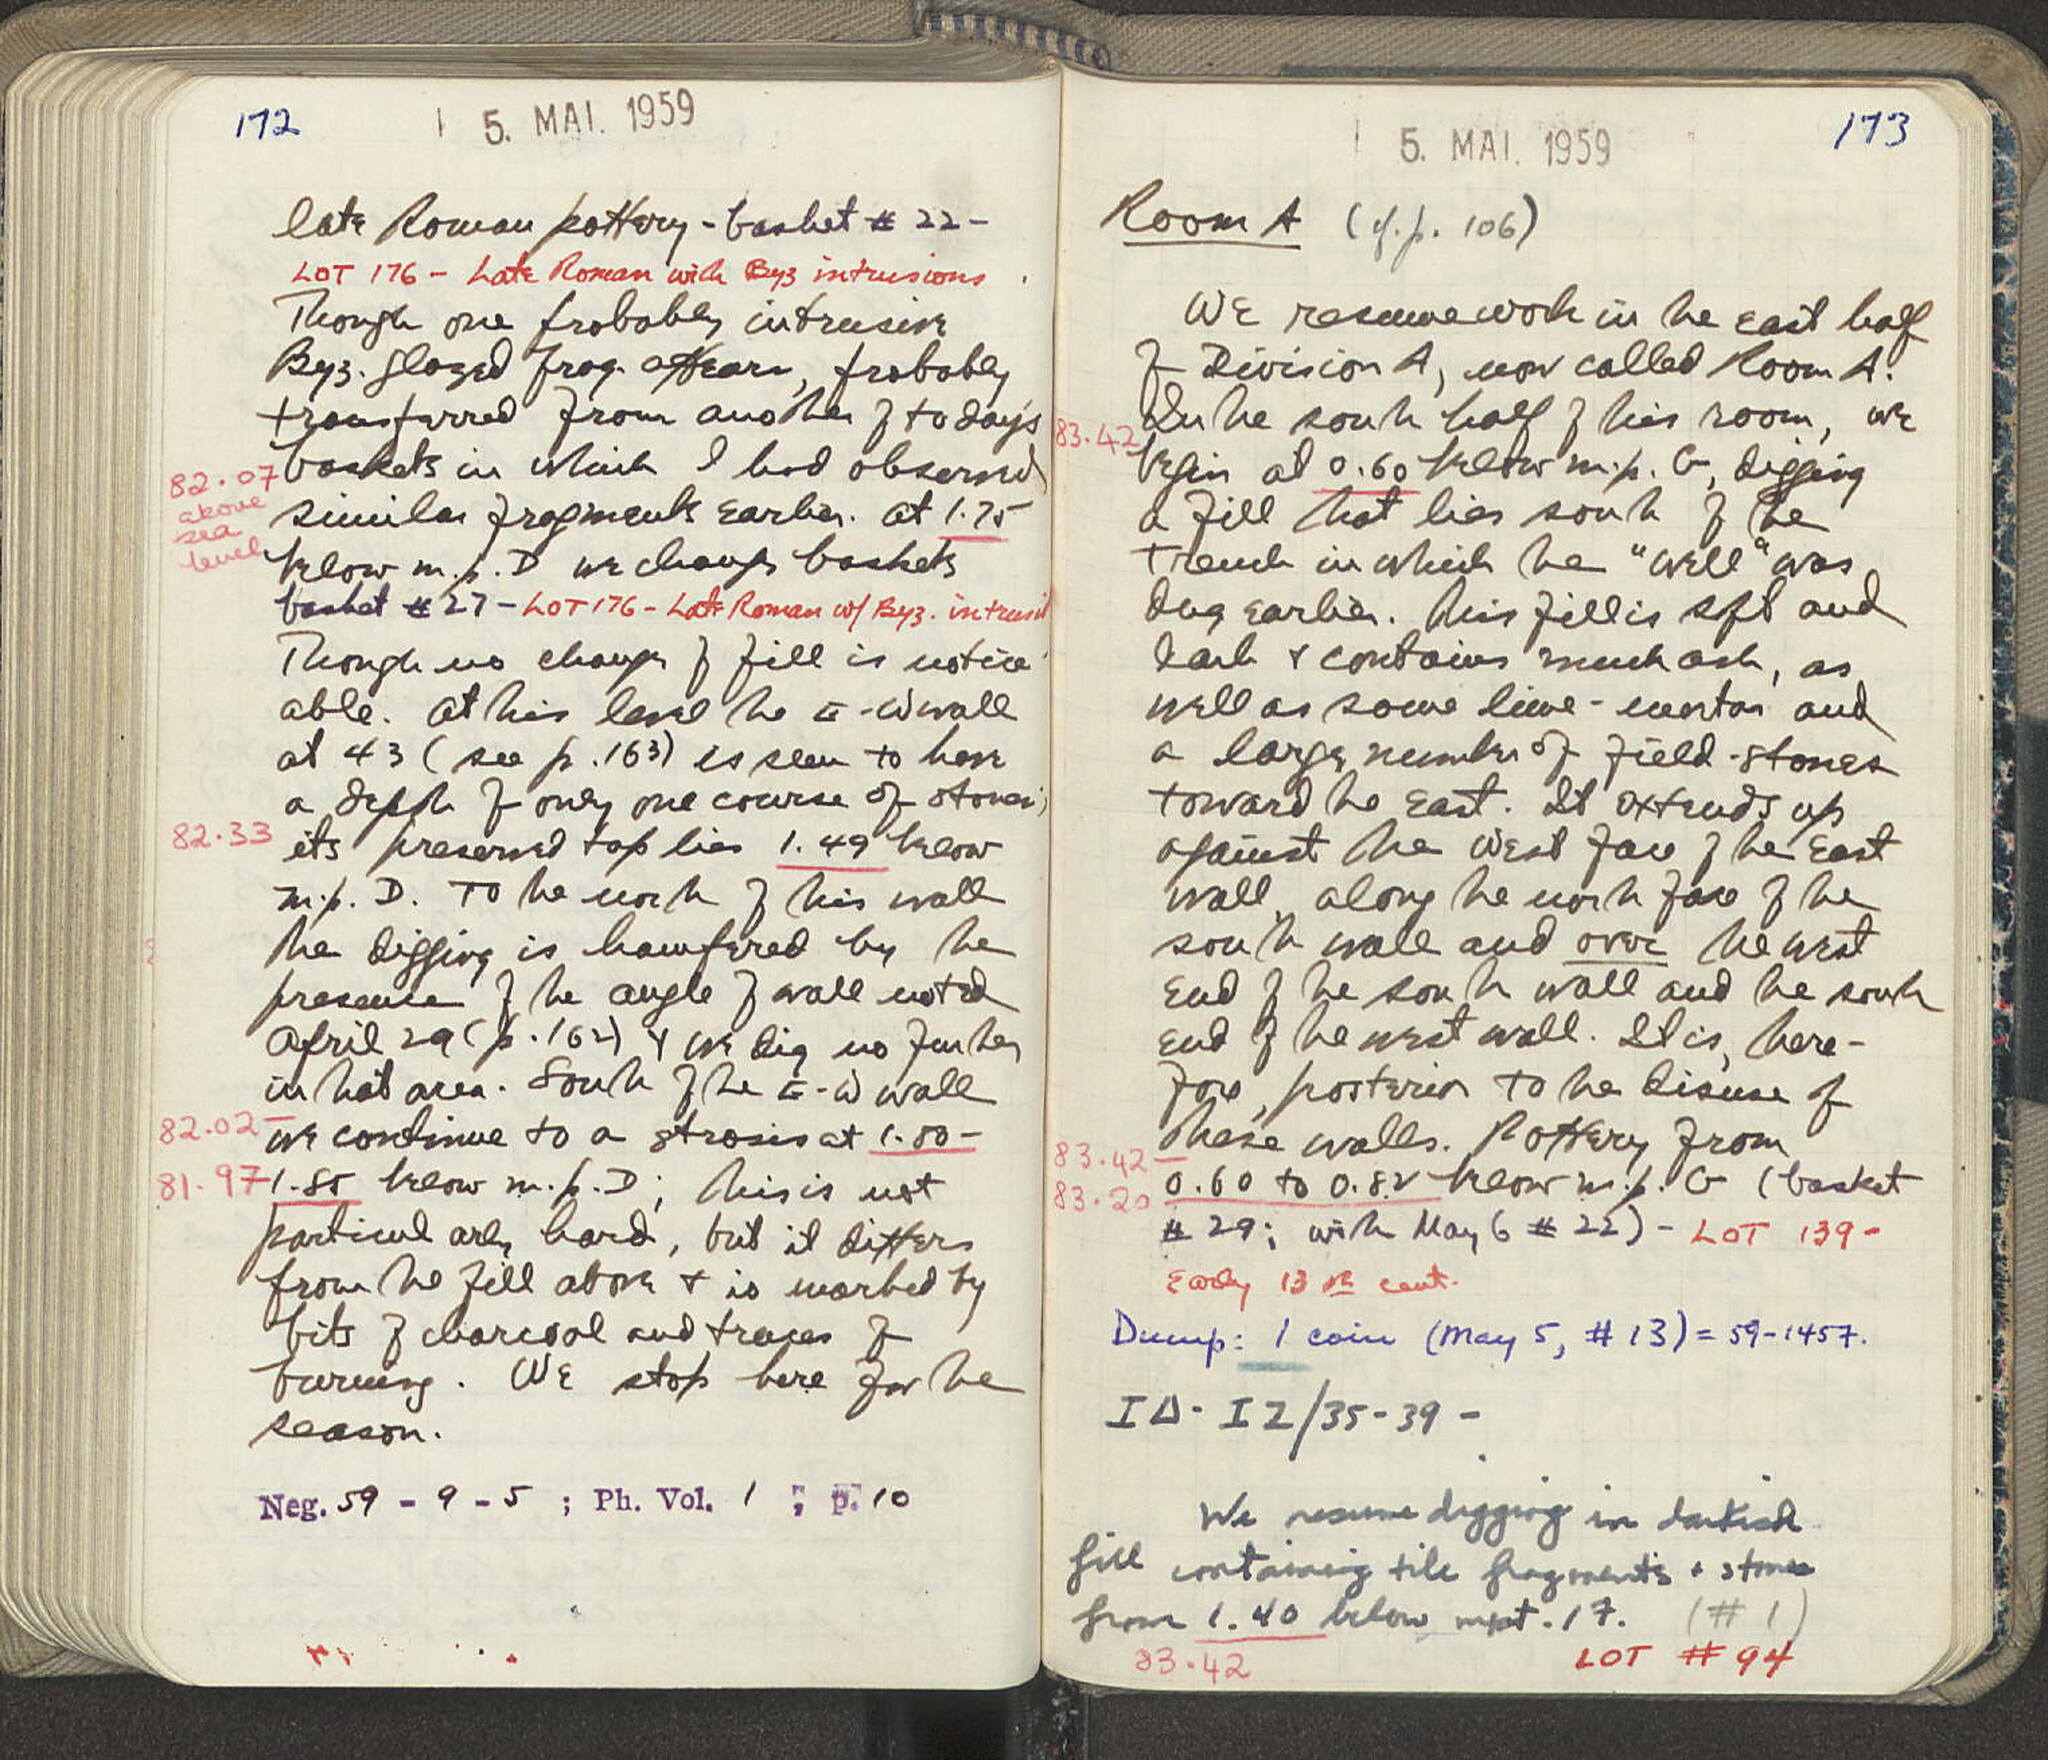 172
5. MAI. 1959
late Roman pottery - basket # 22 -
LOT 176 - Late Roman with Byz intrusions
Though one probably intrusive
Byz. glazed frag. appears, probably
transferred from another of todays
baskets in which I had observed
82.07
above
sea
level
similar fragments earlier. At 1.75
below m.p. D we change baskets
basket # 27 - LOT 176 - Late Roman w/ Byz. intrusi
Though no change of fill is notice
able. At this level the E-W wall
at 43 (see p. 163) is seen to have
a depth of only one course of stones;
82.33
its preserved top lies 1.49 below
m.p. D. To the north of this wall
the digging is hampered by the
presence of the angle of wall noted
April 29 (p. 162) & we dig no further
in that area. South of the E-W wall
82.02 -
we continue to a strosis at 1.80 -
81.97
1.85 below m.p. D; this is not
particularly hard, but it differs
from the fill above & is marked by
bits of charcoal and traces of
burning. We stop here for the
season.
Neg. 59 - 9 - 5 ; Ph. Vol. 1 ; p. 10
173
5. MAI. 1959
Room A (cf. p. 106)
We resume work in the east half
of Division A, now called Room A.
In the south half of this room, we
83.42
begin at 0.60 below m.p. G, digging
a fill that lies south of the
trench in which the "well" was
dug earlier. This fill is soft and
dark & contains much ash, as
well as some lime-mortar and
a large number of field-stones
toward the east. It extends up
against the west face of the east
wall, along the north face of the
south wall and over the west
end of the south wall and the south
end of the west wall. It is, there-
fore, posterior to the disuse of
these walls. Pottery from
83.42 -
83.20
0.60 to 0.82 below m.p. G (basket
# 29; with May 6 # 22) - LOT 139 -
Early 13th cent.
Dump: 1 coin (May 5, # 13) = 59-1457.
ΙΔ - ΙΖ/35-39 -
We resume digging in darkish
fill containing tile fragments + stones
from 1.40 below mpt. 17. (# 1)
83.42
LOT # 94